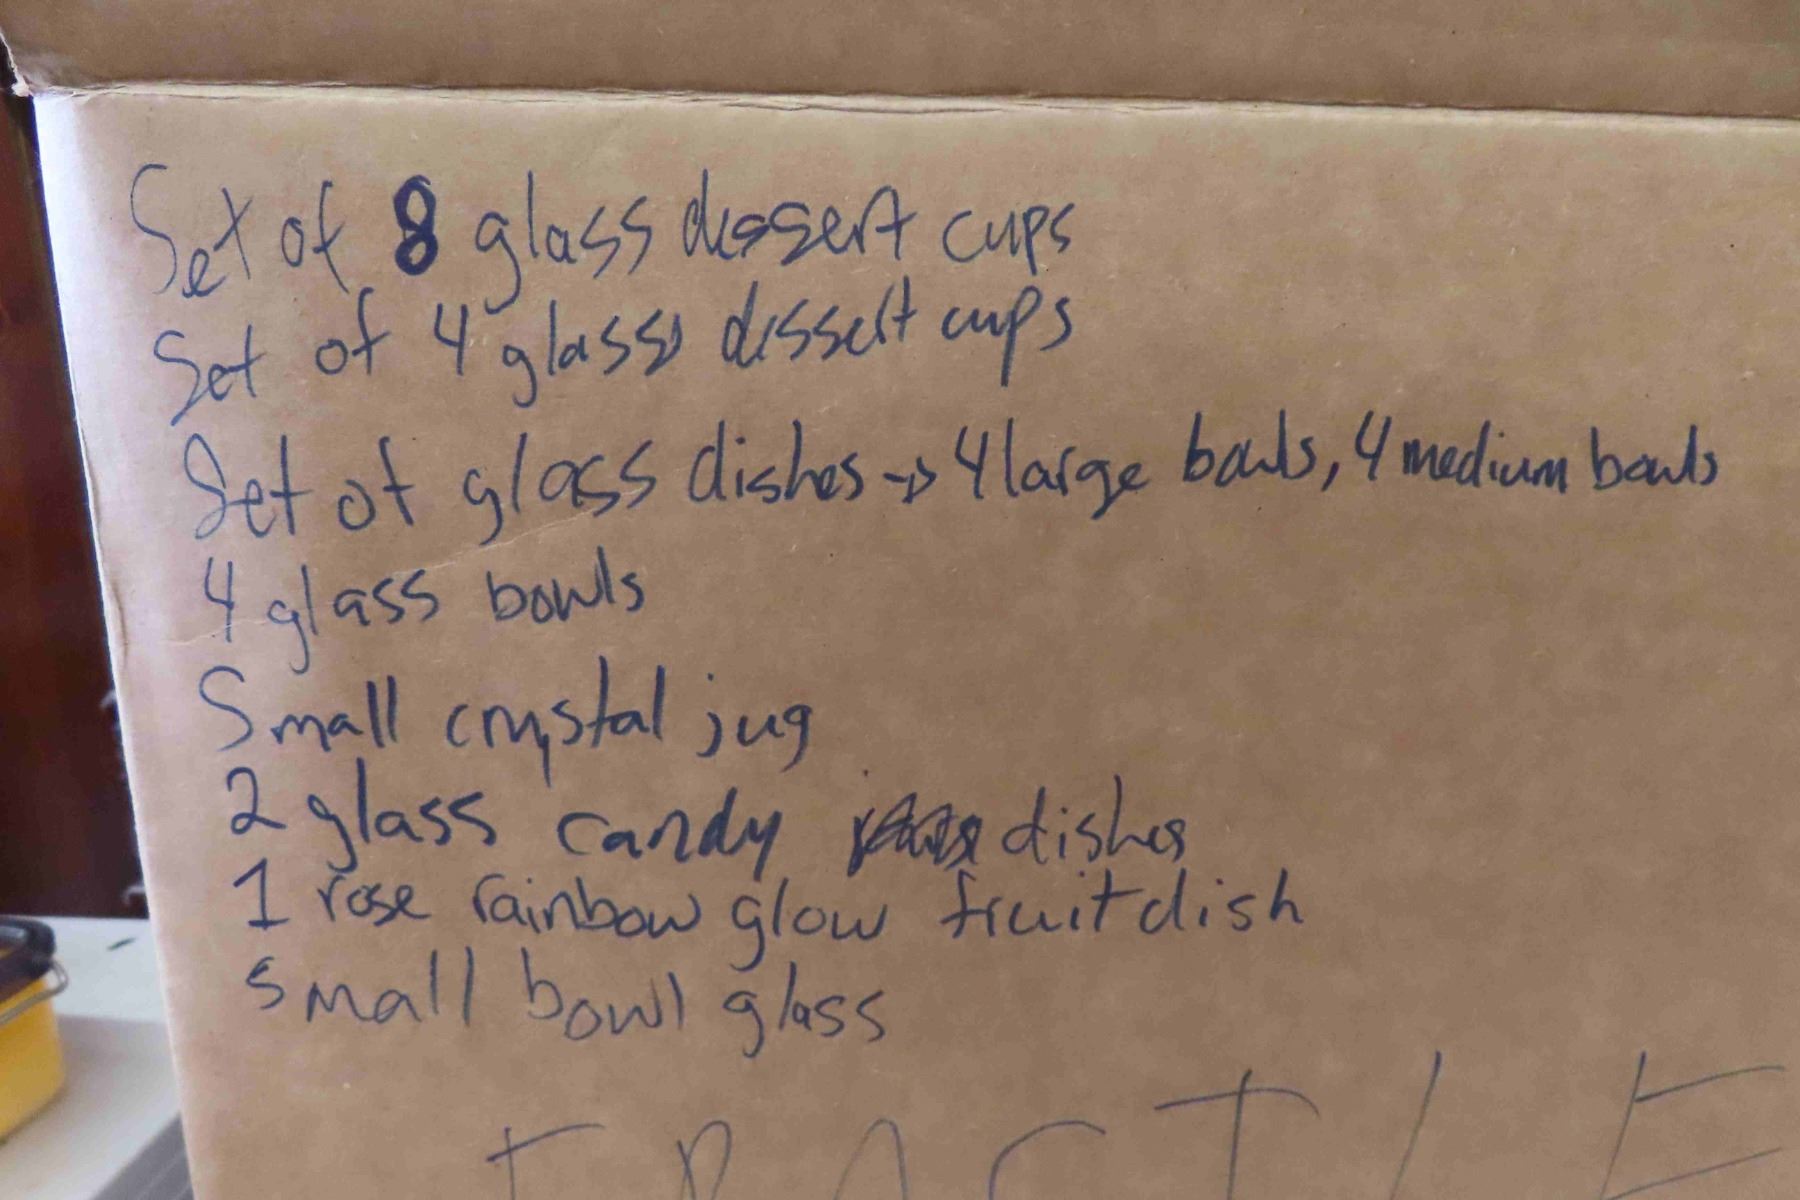 Set of 8 glass dessert cups
Set of 4 glass dessert cups
Set of glass dishes → 4 large bowls, 4 medium bowls
4 glass bowls
Small crystal jug
2 glass candy dishes
1 rose rainbow glow fruit dish
small bowl glass